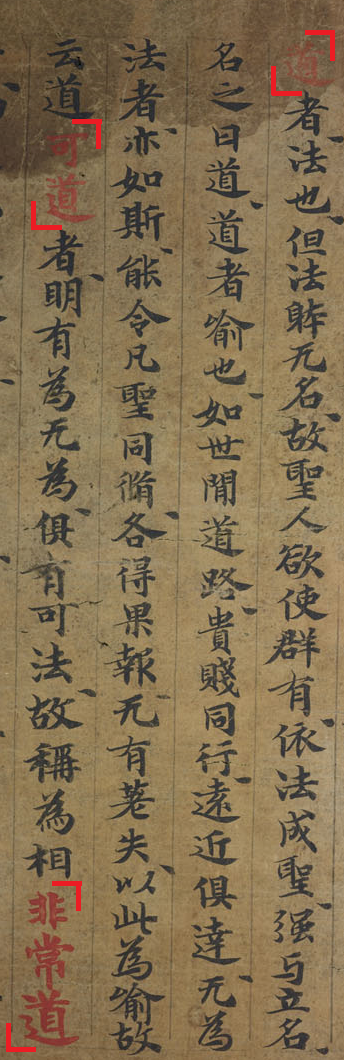 道者法也但法躰无名故聖人欲使群有依法成聖强与立名
名之曰道道者喻也如世間道路貴賤同行遠近俱達无為
法者亦如斯能令凡聖同脩各得果報无有差失以此為喻故
云道可道者明有為无為俱有可法故稱為相非常道